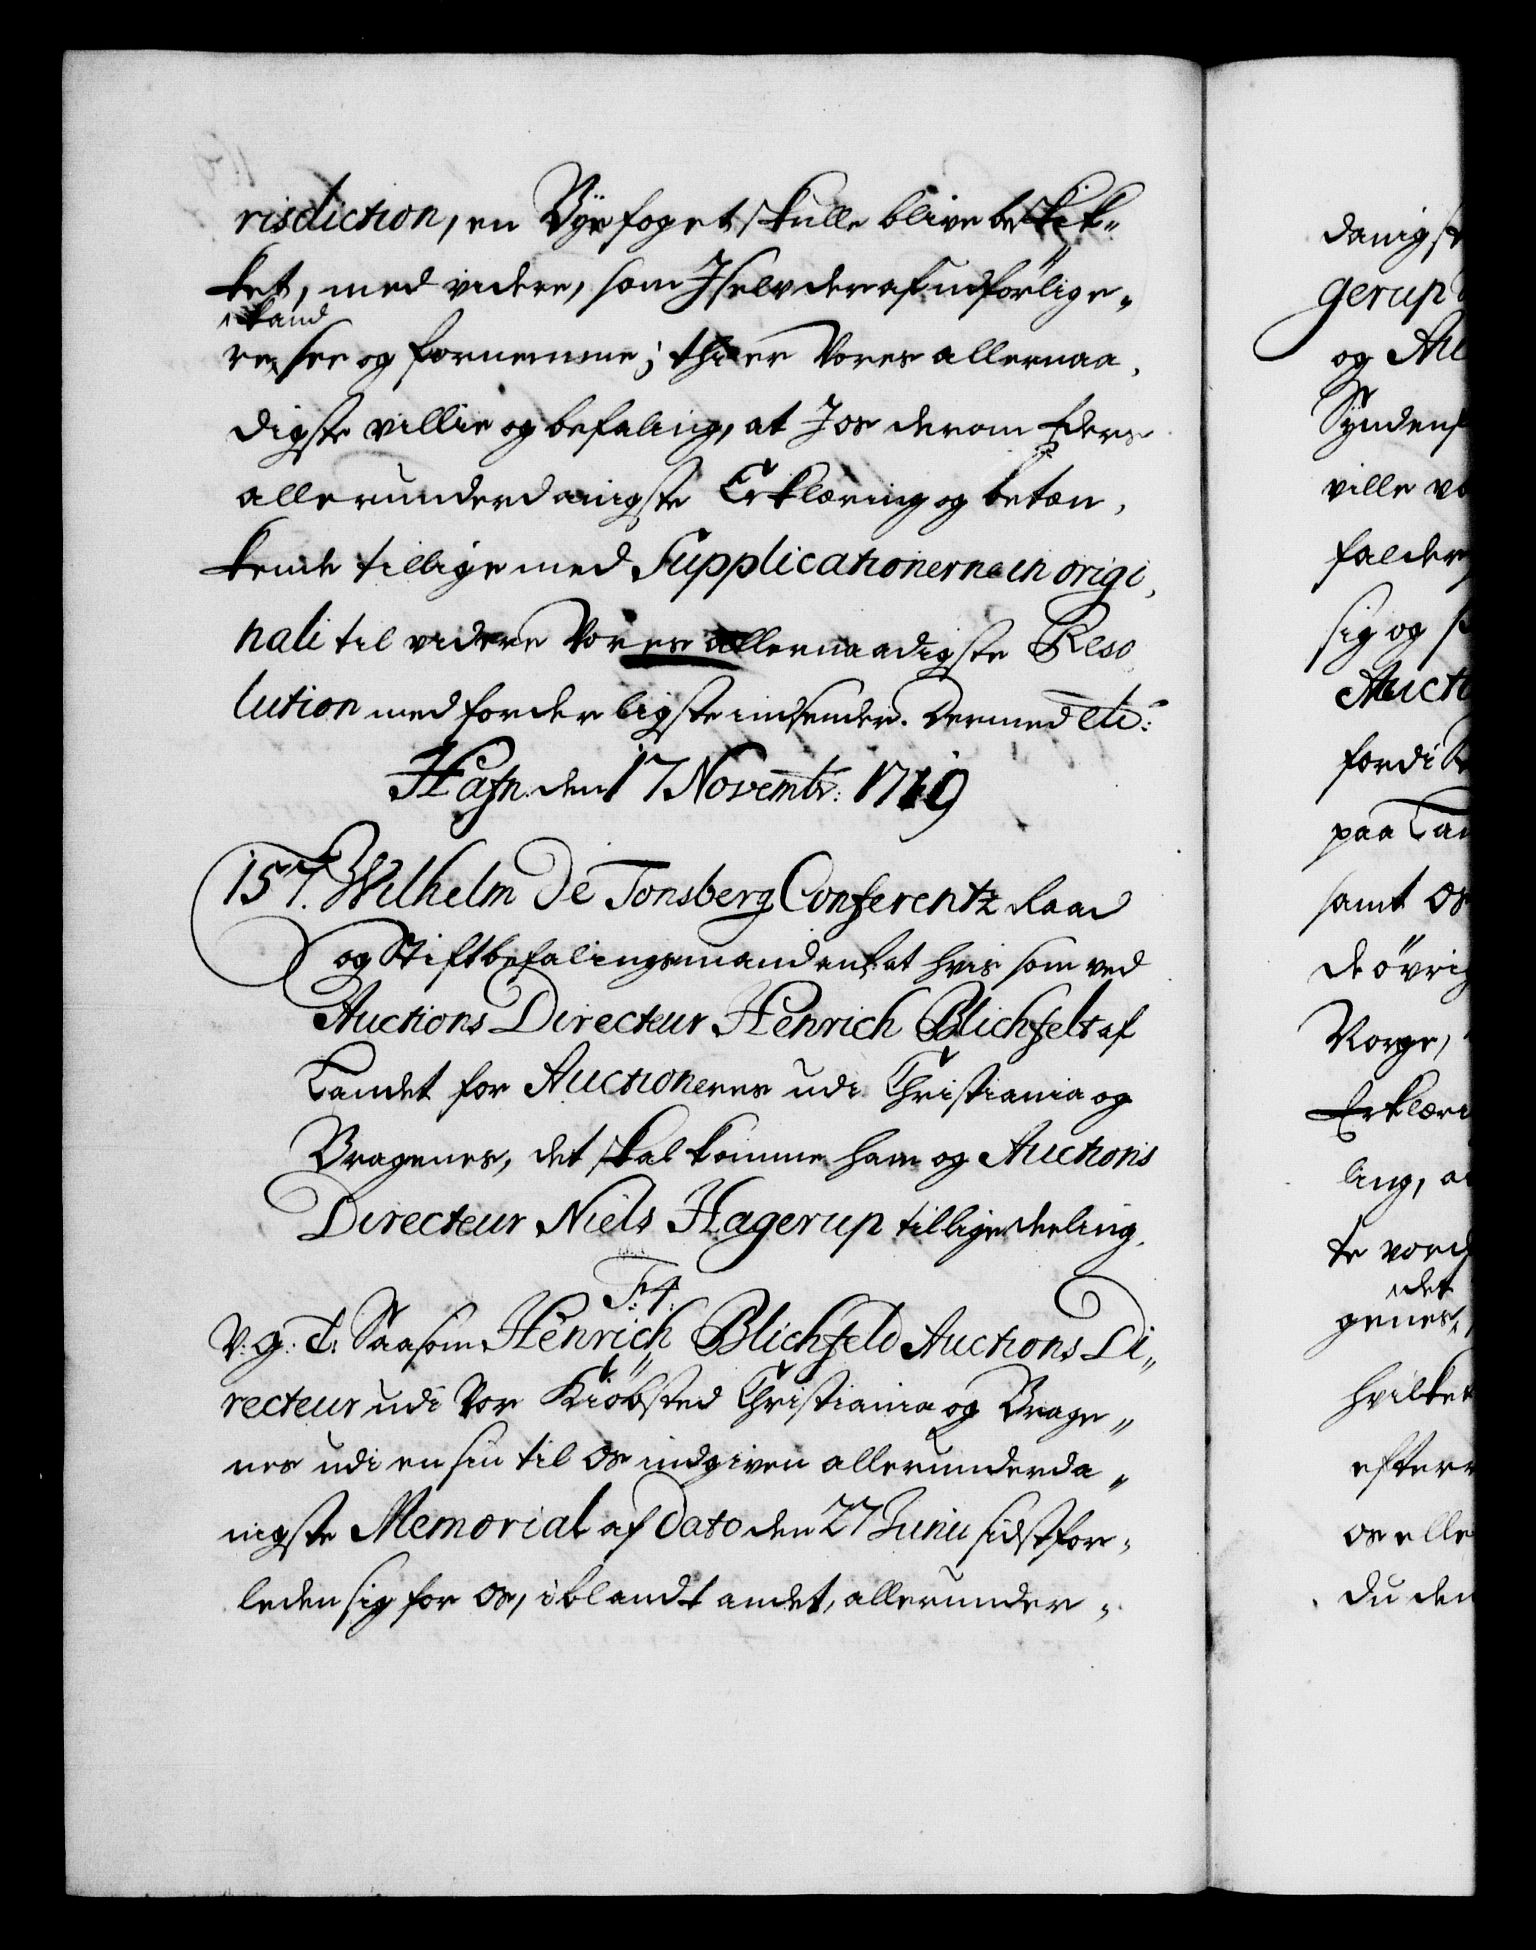 risdiction, en Bÿefoget skulle blive beskik„
ket, med videre, som I selv deraf udförlige„
kand
re see og fornemme; thi er Vores allernaa,
digste villie og befaling, at I os derom Eders
allerunderdanigste Erklæring og betæn,
kende tillige med Supplicationerne in origi,
nali til videre Vores allernaadigste Reso
lution med forderligste indsender. Dermed etc:
Hafn. den 17 Novembr: 1719
157. Wilhelm De Tonsberg Conferentz Raad
og Stiftbefalingsmand ank: at hvis som ved
Auctions Directeur Henrich Blichfelt af
Landet for Auctionerne udi Christiania og
Bragenes, det skal komme ham og Auctions
Directeur Niels Hagerup tillige deeling.
F: 4.
V: g: T: Saasom Henrich Blichfeld Auctions Di„
recteur udi Vor Kiöbsted Christiania og Brage„
nes udi en sin til os indgiven allerunderda„
nigste Memorial af Dato den 27 Junii sidstfor„
leden sig for os, iblandt andet, allerunder„
danigst
gerup
og Auc
Syndenf
ville vo
falder
sig og s
Aucti
fordi
paa Lan
samt os
de övrig
Norge,
Erklæri
ling, a
te vord
det
genes,
hvilket
efterr
os elle
du den